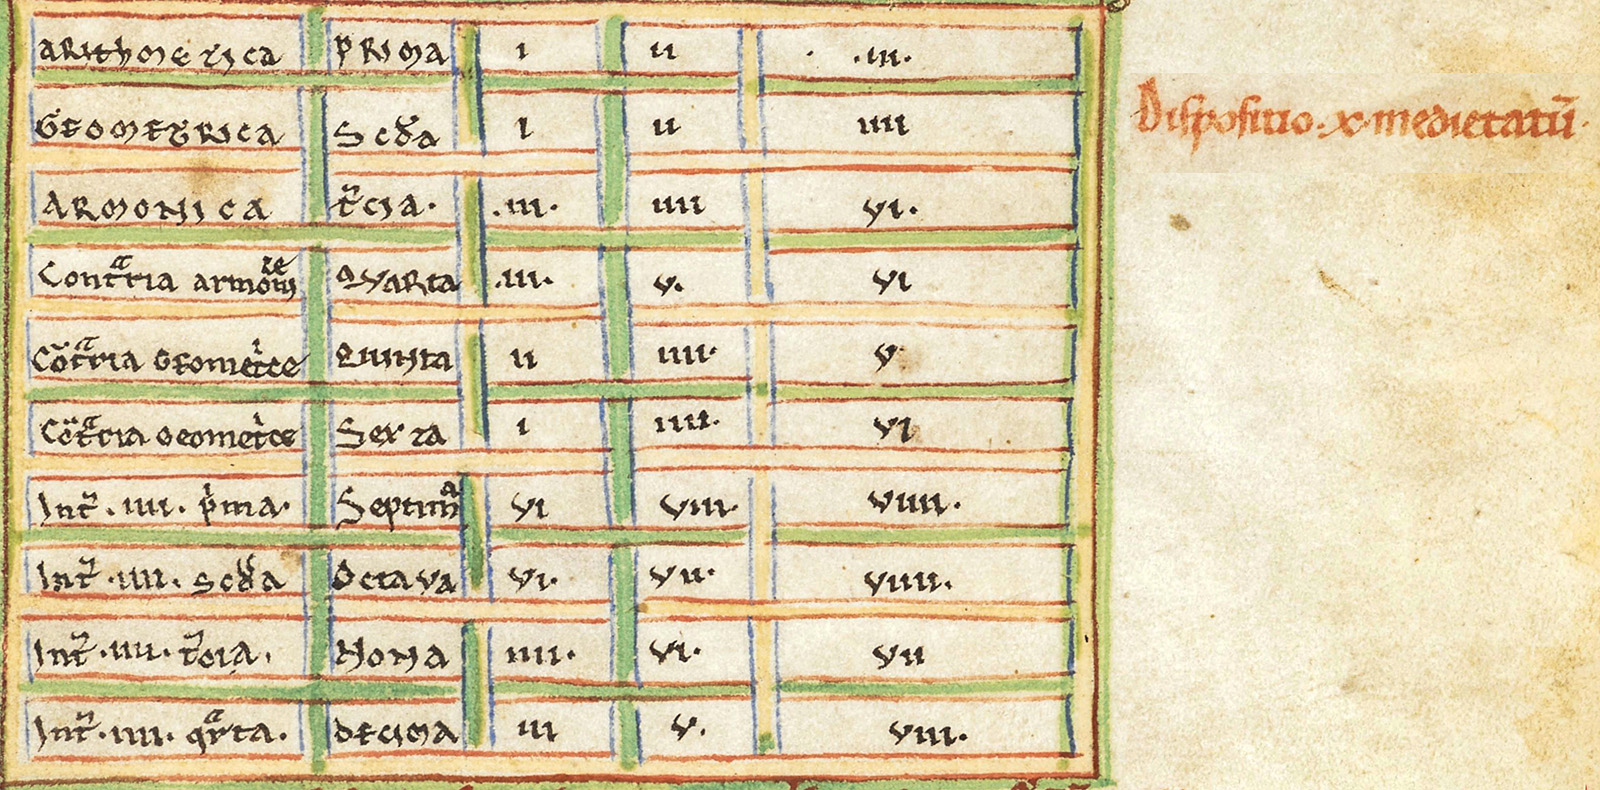 ARithmeTICA PRIMA I II .III.
Dispositio .x. medietatū.
GEOMETRICA Scďa I II IIII
ARMONICA t̃cIA. .III. IIII VI.
Contͣria armoniͨe QVARTA .III. V. VI
Cōtͣria GEometͥce QUINTA II IIII. V
Cōtͣria Geometͥce SexTA I IIII. VI
Int̃ .IIII. pͥma. Septimͣ VI VIII. VIIII.
Int̃ .IIII. scďa OctaVA VI. VII. VIIII.
Int̃ .IIII. t̃cia. NONA IIII. VI. VII
Int̃ .IIII. qͣrta. DECIMA III V. VIII.